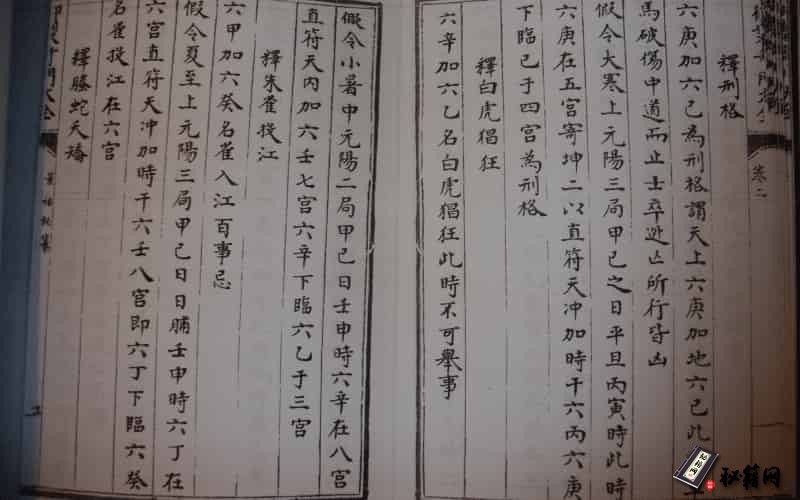 卷二
釋刑格
六庚加六己為刑格謂天上六庚加地六己此
馬破傷中道而止士卒逃亡所行皆凶
假令大寒上元陽三局甲己之日平旦丙寅時此時
六庚在五宮寄坤二以直符天冲加時干六丙六庚
下臨己于四宮為刑格
釋白虎猖狂
六辛加六乙名白虎猖狂此時不可舉事
假令小暑中元陽二局甲己日壬申時六辛在八宮
直符天內加六壬七宮六辛下臨六乙于三宮
釋朱雀投江
六甲加六癸名雀入江百事忌
假令夏至上元陽三局甲己日日晡壬申時六丁在
六宮直符天冲加時干六壬八宮即六丁下臨六癸
名雀投江在六宮
釋螣蛇夭矯
秘籍网